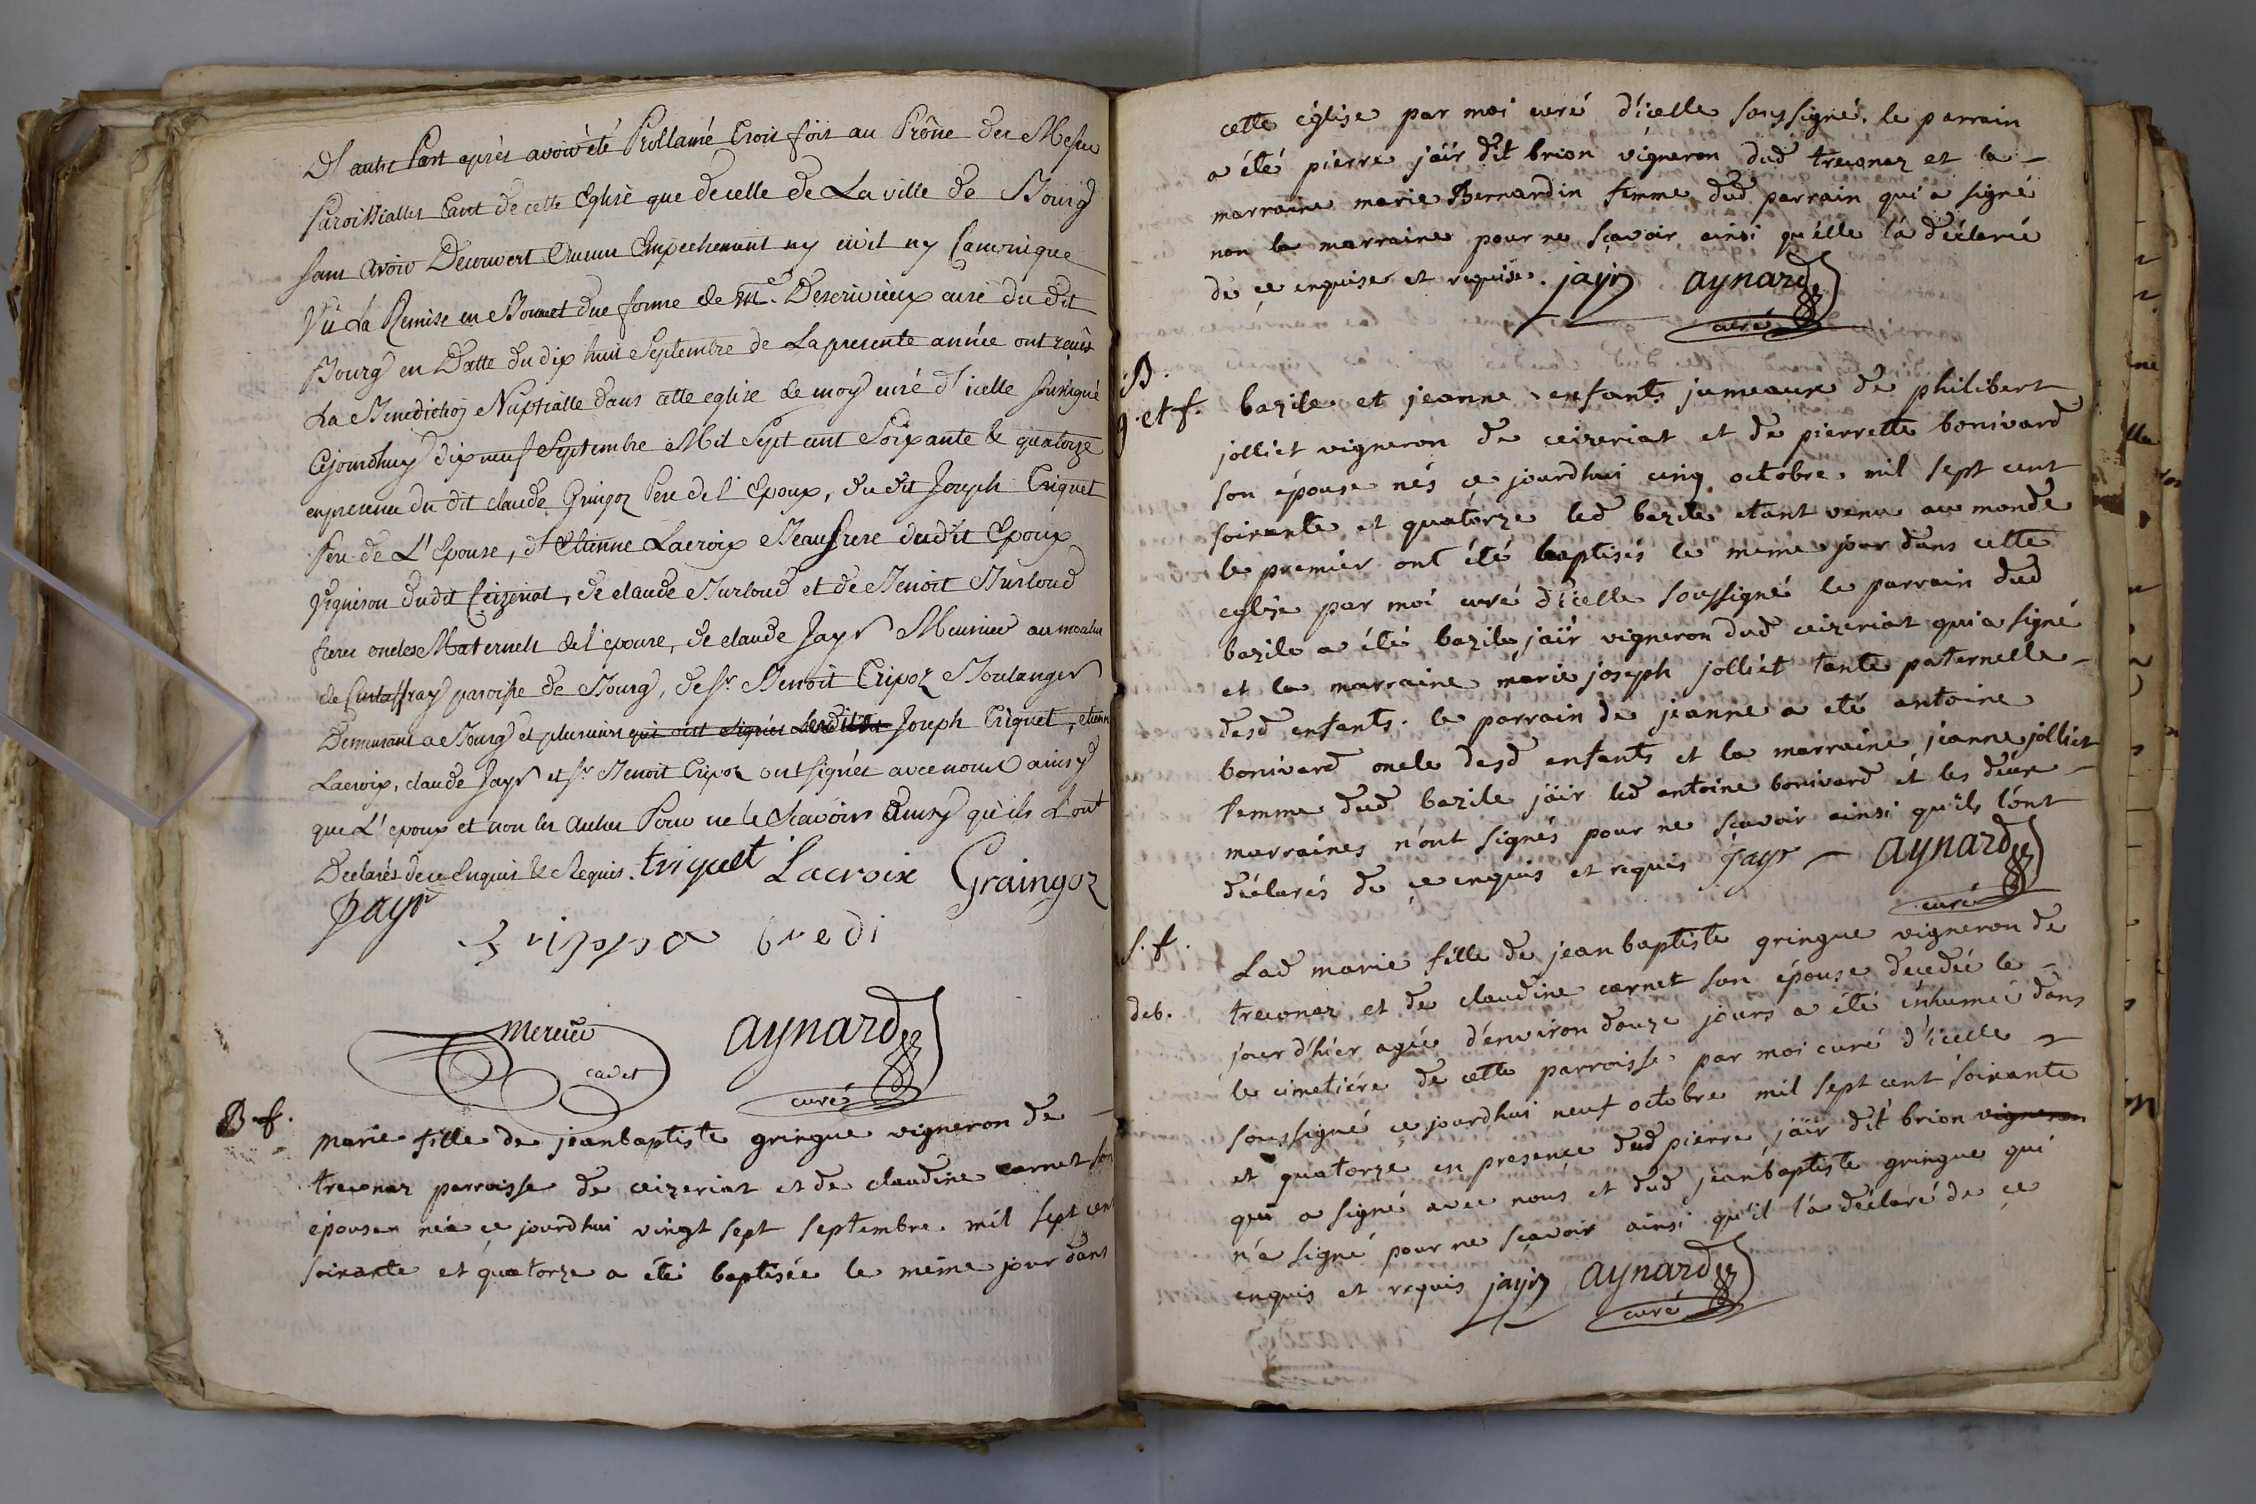 D'autre Part après avoir été Proclamé trois fois au Prône des Messes
Paroissialles tant de cette Eglise que de celle de La ville de Bourg
sans avoir Decouvert Aucun Empechement ny civil ny Canonique
Vû La Remise en Bonnet due forme de Mre. Descrivieux curé du dit
Bourg en Datte du dix huit Septembre de La presente année ont reçûs
La Benediction Nuptialle dans cette eglise de moy curé d'icelle soussigné
Cejourdhuy dix neuf Septembre Mil Sept cent Soixante & quatorze
en presence du dit claude Gringoz Pere de l'Epoux, du dit Joseph Triquet
Pere de L'Epouse, d'Etienne Lacroix Beaufrere dudit Epoux
Vigneron dudit Ceizeriat, de claude Burloud et de Benoit Burloud
freres oncles Maternels de l'epouse, de claude Jayr Meunier au moulin
de Curtaffray paroisse de Bourg, de sr. Benoit Tripoz Boulanger
Demeurant a Bourg et plusieurs qui ont signés Joseph Triquet, etienne
Lacroix, claude Jayr et sr. Benoit Tripoz ont signés avec nous ainsy
que L'epoux et non les autres Pour ne le Scavoir Ainsy qu'ils L'ont
Declarés de ce Enquis & Requis. triquet Lacroix Graingoz
Jayr
bredi
mercier
cadet
aynard
curé
B. f.
marie fille de jean baptiste gringue vigneron de
treconaz parroisse de ceizeriat et de claudine carnet son
épouse née ce jourdhui vingt sept septembre mil sept cent
soixante et quatorze a été baptisée le même jour dans
cette église par moi curé d'icelle soussigné. le parrain
a été pierre jaïr dit brion vigneron dud treconaz et la
marraine marie Bernardin femme dud parrain qui a signé
non la marraine pour ne sçavoir ainsi qu'elle l'a déclaré
de ce enquise et requise. jayr aynard
curé
B.
g. et f.
bazile et jeanne enfants jumeaux de philibert
jolliet vigneron de ceizeriat et de pierrette bonivard
son épouse nés ce jourdhui cinq octobre mil sept cent
soixante et quatorze led bazile etant venu au monde
le premier ont été baptisés le meme jour dans cette
eglise par moi curé d'icelle soussigné le parrain dud
bazile a été bazile jaïr vigneron dud ceizeriat qui a signé
et la marraine marie joseph jolliet tante paternelle
desd enfants. le parrain de jeanne a été antoine
bonivard oncle desd enfants et la marraine jeanne jolliet
femme dud bazile jaïr led antoine bonivard et les deux
marraines n'ont signés pour ne sçavoir ainsi qu'ils l'ont
déclarés de ce enquis et requis Jayr aynard
curé
S. f.
deb.
Lad marie fille de jean baptiste gringue vigneron de
treconaz et de claudine carnet son épouse decedée le
jour d'hier agée d'environ douze jours a été inhumée dans
le cimetière de cette parroisse par moi curé d'icelle
soussigné ce jourdhui neuf octobre mil sept cent soixante
et quatorze en presence dud pierre jaïr dit brion vigneron
qui a signé avec nous et dud jean baptiste gringue qui
n'a signé pour ne sçavoir ainsi qu'il l'a déclaré de ce
enquis et requis jayr aynard
curé